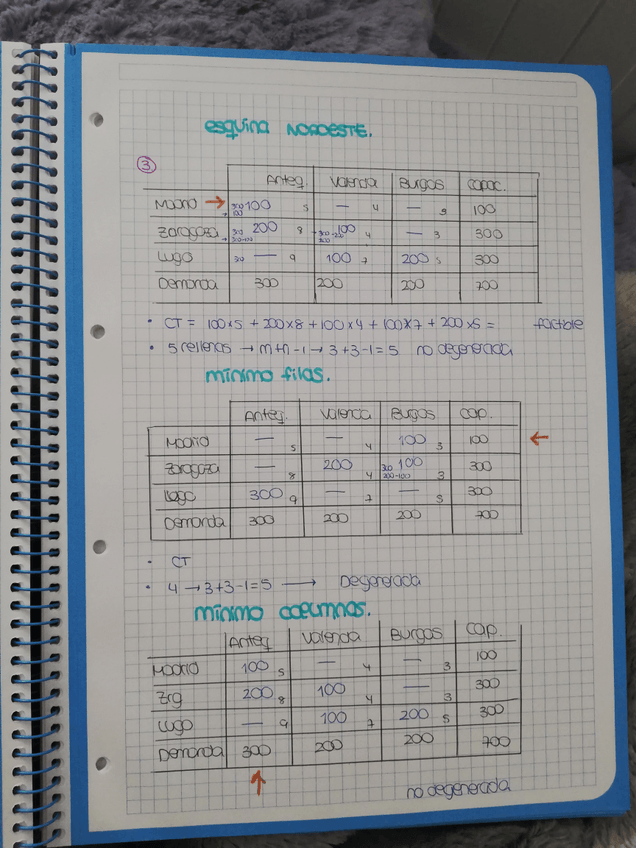 esquina NOROESTE.
3
Anteq. Valencia Burgos Capac.
Madrid → 100 5 — 4 — 3 100
Zaragoza 200 8 100 4 — 3 300
Lugo 300 — 9 100 7 200 5 300
Demanda 300 200 200 700
• CT = 100x5 + 200x8 + 100x4 + 100x7 + 200x5 = factible
• 5 rellenas → m+n-1 → 3+3-1=5 no degenerada
mínimo filas.
Anteq. Valencia Burgos Cap.
Madrid — 5 — 4 100 3 100 ←
Zaragoza — 8 200 4 300 200-100 100 3 300
Lugo 300 9 — 7 — 5 300
Demanda 300 200 200 700
• CT
• 4 → 3+3-1=5 → Degenerada
mínimo columnas.
Anteq Valencia Burgos Cap.
Madrid 100 5 — 4 — 3 100
Zrg 200 8 100 4 — 3 300
Lugo — 9 100 7 200 5 300
Demanda 300 200 200 700
↑
no degenerada